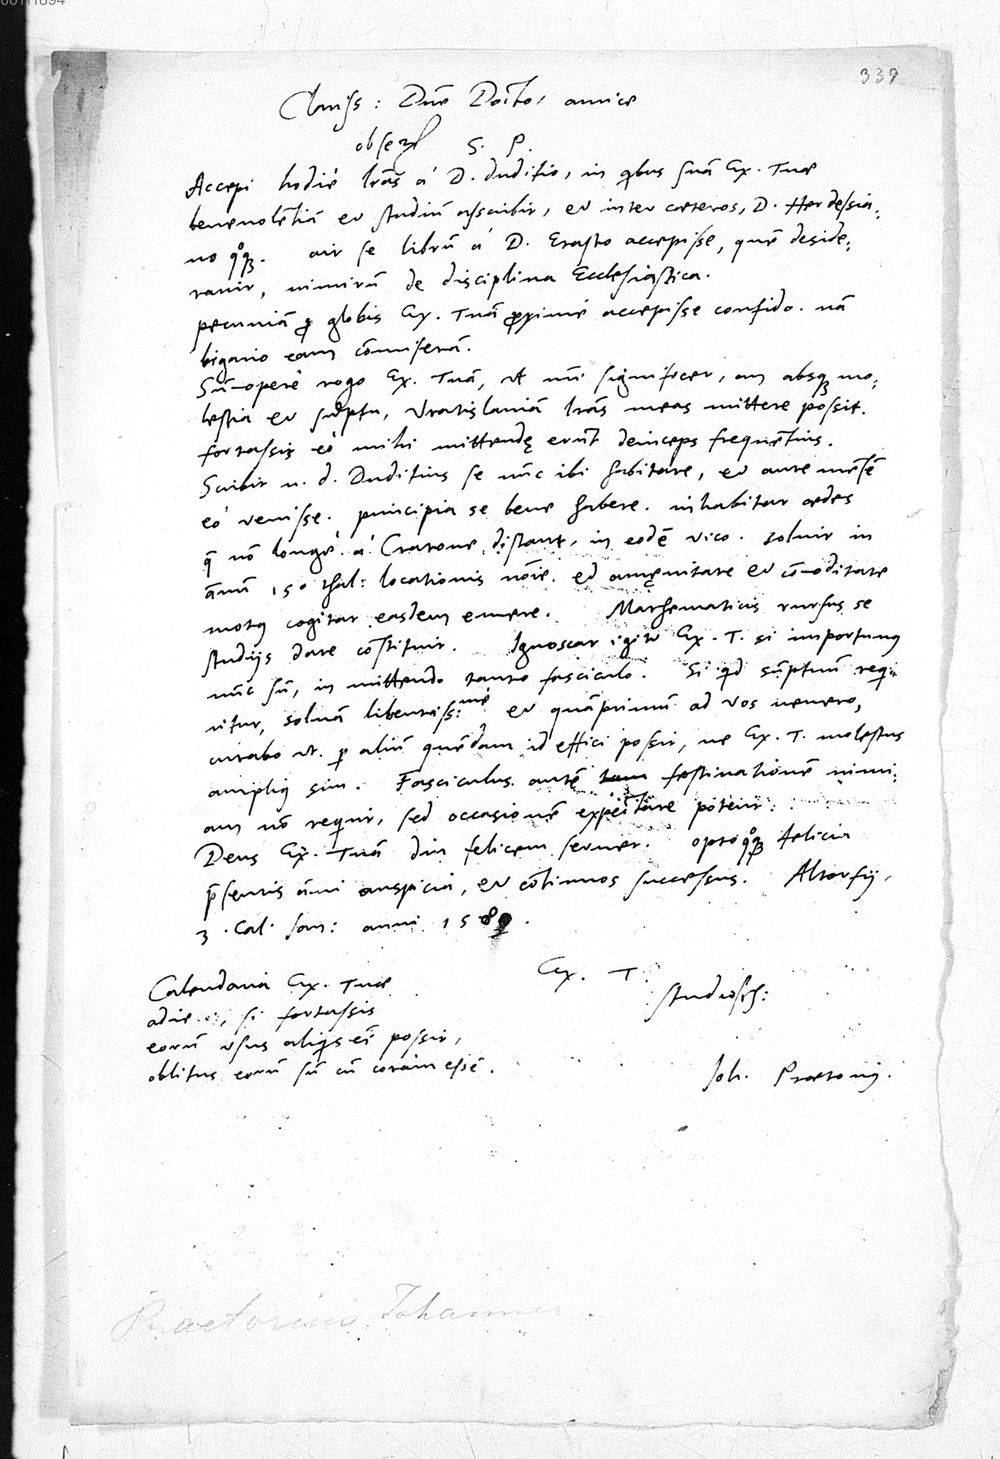 339
Clariss: Dn̄e Doctor, amice
observ̄. S. P.
Accepi hodiè lr̄as à D. Duditio, in qbus suā Ex. Tuae
benevolētiā et studiū ascribit, et inter caeteros, D. Herdessia,
no qq̃. ait se librū à D. Erasto accepisse, quē deside,
ravit, nimirū de disciplina Ecclesiastica.
pecuniā p globis Ex. Tuā pximè accepisse confido. nā
bigario eam cōmiserā.
Sūopere rogo Ex. Tuā, ut mī significet, an absq mo,
lestia et sūptu, Vratislaviā lr̄as meas mittere possit.
fortassis eò mihi mittendę erūt deinceps frequētius.
Scribit n. d. Duditius se nūc ibi habitare, et ante mēsē
eò venisse. principia se bene habere. inhabitat aedes
q̄ nō longè à Cratone distant, in eodē vico. solvit in
ānū 150 thal: locationis noīe. et amęnitate et cōmoditate
motq cogitat easdem emere. Mathematicis rursus se
studijs dare cōstituit. Ignoscat igitr Ex. T. si importunq
nūc sū, in mittendo tanto fasciculo. Si qd sūptuū requi,
ritur, solvā libentiss:mè et quāprimū ad vos venero,
curabo ut p aliū quēdam id effici possit, ne Ex. T. molestus
ampliq sim. Fasciculus autē tam festinationē nimi,
am nō requirit, sed occasionē expectare poterit.
Deus Ex. Tuā diu felicem servet. opto qq̃ felicia
p̄sentis āni auspicia, et cōtinuos successus. Altorfij,
3. Cal. Jan: anni 1589.
Ex. T.
studiosiss:
Joh. Praetoriq.
Calendaria Ex. Tuae
si fortassis
eorū usus aliqis eī possit,
oblitus eorū sū cū coràm essē.
Praetorius Johannes.